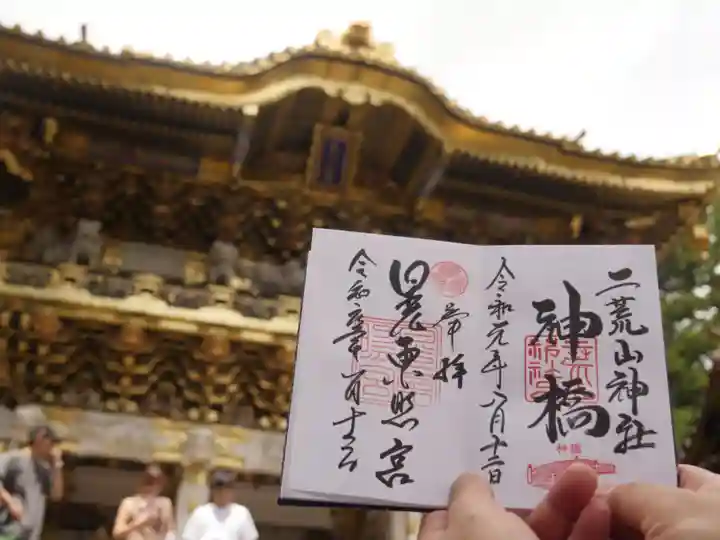 二荒山神社
神橋
令和元年八月十二日
奉拝
日光東照宮
令和元年八月十二日
神橋